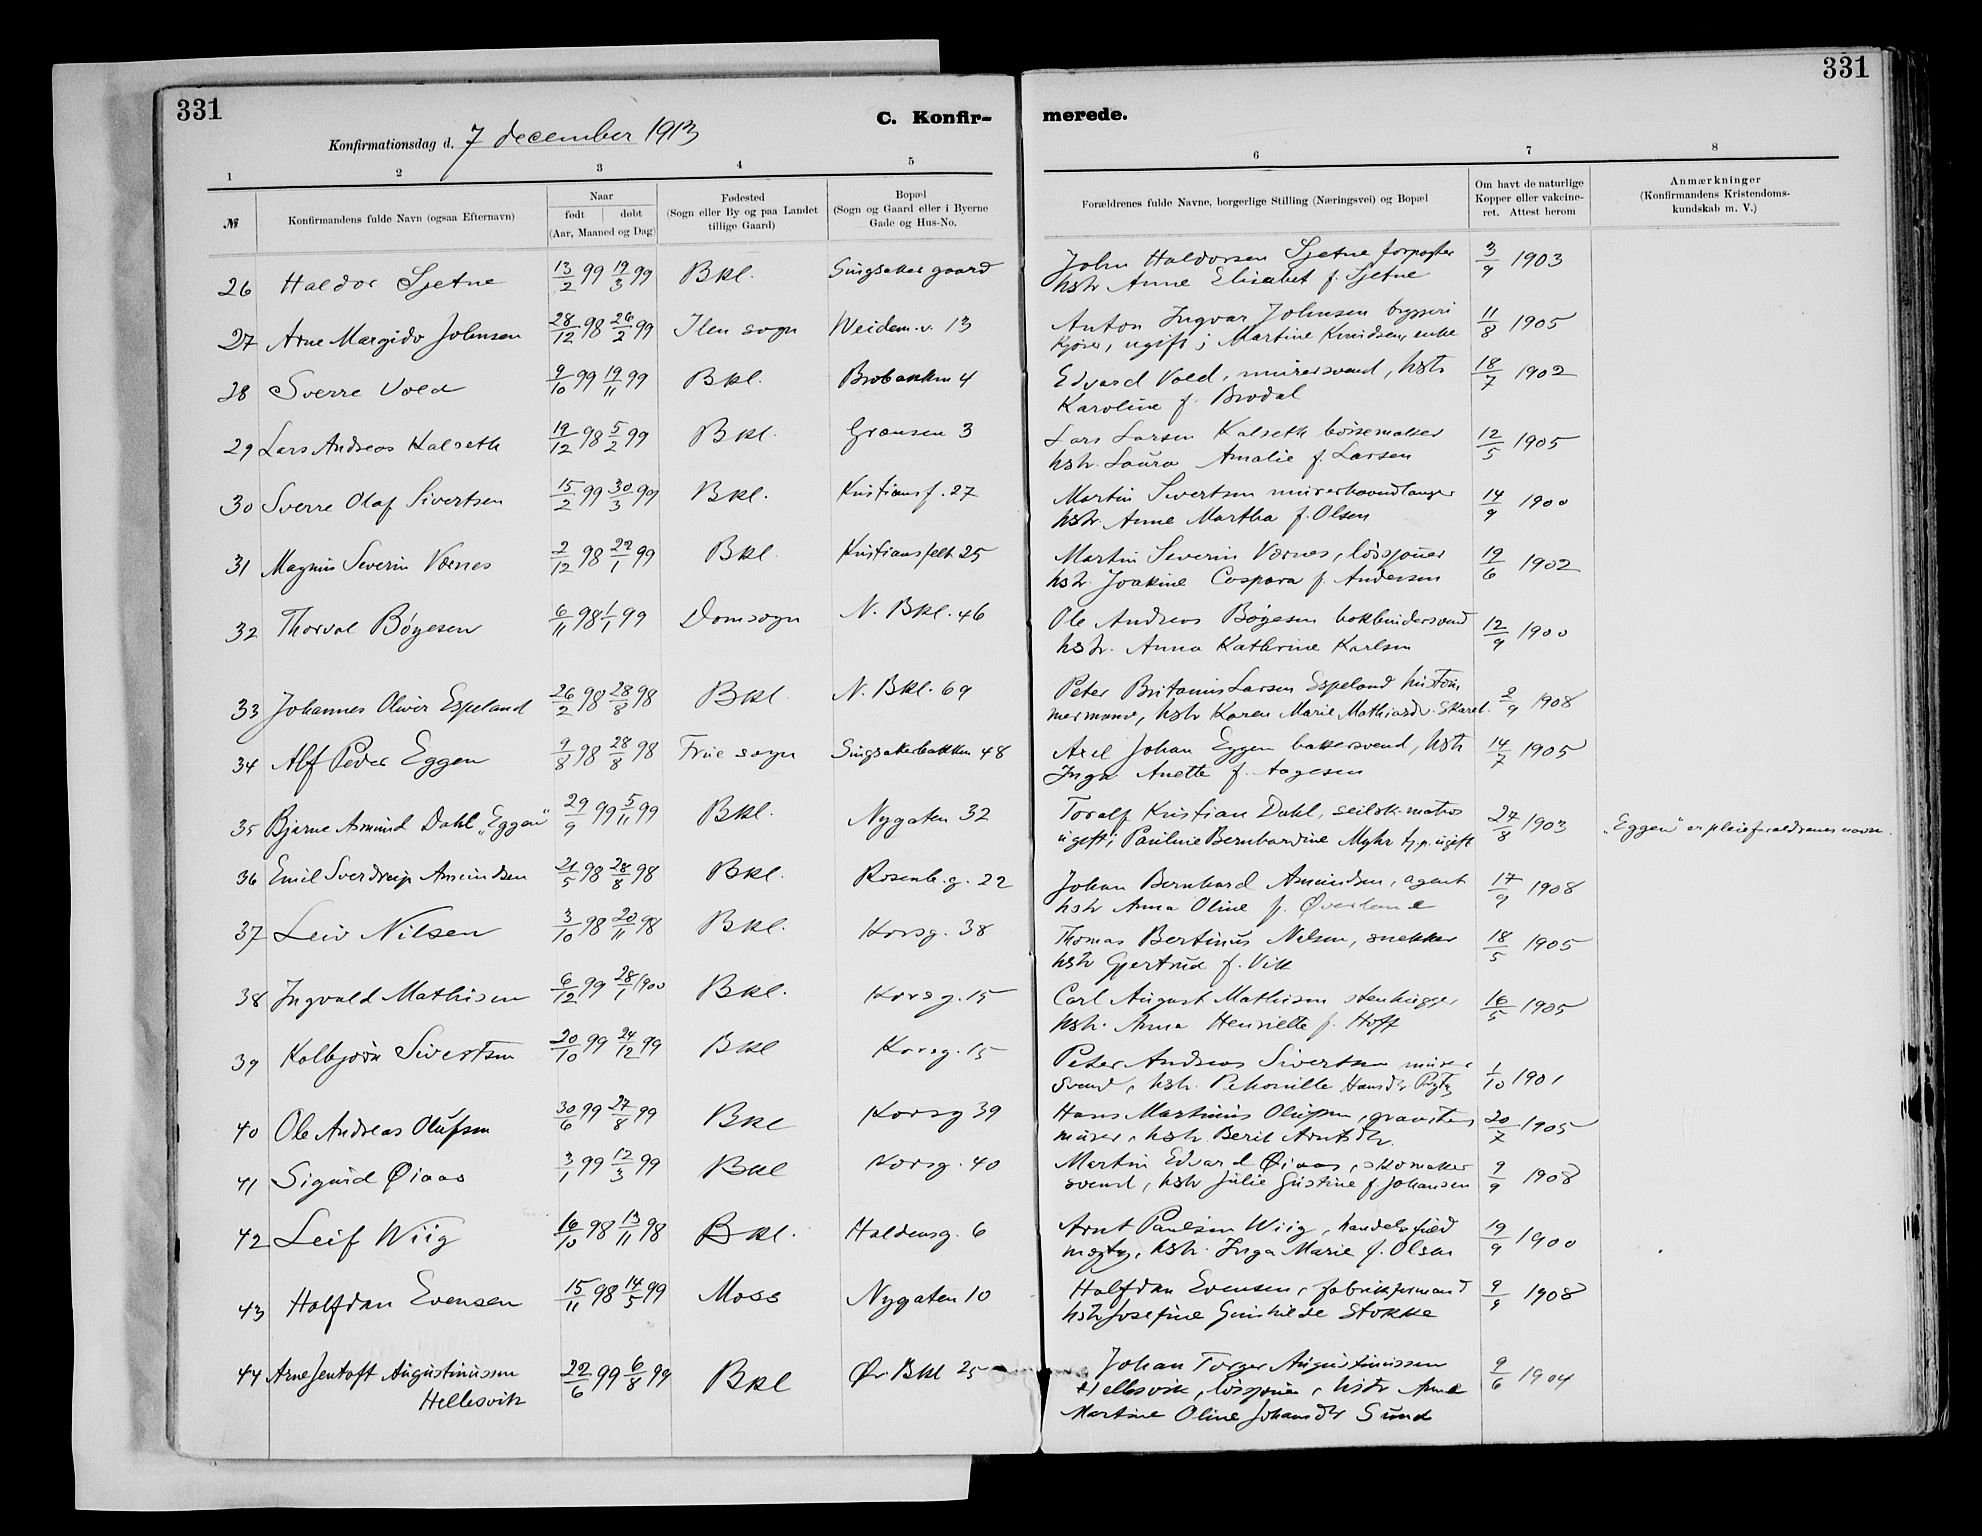 331
331
C. Konfir-
merede.
Konfirmationsdag d. 7 december 1913
1 2 3 4 5 6 7 8
№
Konfirmandens fulde Navn (ogsaa Efternavn)
Naar
født døbt
(Aar, Maaned og Dag)
Fødested
(Sogn eller By og paa Landet
tillige Gaard)
Bopæl
(Sogn og Gaard eller i Byerne
Gade og Hus-No.
Forældrenes fulde Navne, borgerlige Stilling (Næringsvei) og Bopæl
Om havt de naturlige
Kopper eller vakcine-
ret. Attest herom
Anmærkninger
(Konfirmandens Kristendoms-
kundskab m. V.)
26 Haldor Sjetne 13/2 99 19/3 99 Bkl. Singsaker gaard John Haldorsen Sjetne forpagter 3/9 1903
hstr Anne Elisabet f. Sjetne
27 Arne Margido Johnsen 28/12 98 26/2 99 Ilen sogn Weidem.v. 13 Anton Ingvar Johnsen bryggeri 11/8 1905
kjører, ugift; Martine Knudsen, enke
28 Sverre Vold 9/10 99 19/11 99 Bkl. Brobakken 4 Edvard Vold, murersvend, hstr 18/7 1902
Karoline f. Brodal
29 Lars Andreas Kalseth 19/12 98 5/2 99 Bkl. Grænsen 3 Lars Larsen Kalseth børsemaker 12/5 1905
hstr. Laura Amalie f. Larsen
30 Sverre Olaf Sivertsen 15/2 99 30/3 99 Bkl. Kristiansf. 27 Martin Sivertsen murerhaandlanger 14/9 1900
hstr. Anne Martha f. Olsen
31 Magnus Severin Værnes 2/12 98 22/1 99 Bkl. Kristiansfelt 25 Martin Severin Værnes, løssjouer 19/6 1902
hstr. Joakine Caspara f. Andersen
32 Thorval Bøgesen 6/11 98 1/1 99 Domsogn N. Bkl. 46 Ole Andreas Bøgesen bokbindersvend 12/9 1900
hstr. Anna Kathrine Karlsen
33 Johannes Oliver Espeland 26/2 98 28/8 98 Bkl. N. Bkl. 69 Peter Britanius Larsen Espeland hustøm 2/9 1908
mermand, hstr Karen Marie Mathiasd. Skaret.
34 Alf Peder Eggen 9/8 98 28/8 98 Frue sogn Singsakerbakken 48 Axel Johan Eggen bakersvend, hstr 14/7 1905
Inga Anette f. Aagesen
35 Bjarne Asmund Dahl „Eggen" 29/9 99 5/11 99 Bkl. Nygaten 32 Toralf Kristian Dahl, seilsk.matros 27/8 1903 „Eggen" er pleieforældrenes navn.
ugift; Pauline Bernhardine Myhr tj.p. ugift
36 Emil Sverdrup Amundsen 21/5 98 28/8 98 Bkl. Rosenb.g. 22 Johan Bernhard Amundsen, agent 17/9 1908
hstr Anna Oline f. Øverland
37 Leiv Nilsen 3/10 98 20/11 98 Bkl. Korsg. 38 Thomas Bertinus Nilsen, snekker 18/5 1905
hstr Gjertrud f. Vik
38 Ingvald Mathisen 6/12 99 28/1 1900 Bkl. Korsg. 15 Carl August Mathisen stenhugger 16/5 1905
hstr. Anna Henriette f. Hoff
39 Kolbjørn Sivertsen 20/10 99 24/12 99 Bkl Korsg. 15 Peter Andreas Sivertsen murer 1/10 1901
svend, hstr. Pehonille Hansdtr
40 Ole Andreas Olufsen 30/6 99 27/8 99 Bkl Korsg 39 Hans Martinius Olufsen, graasten 20/7 1905
murer, hstr. Berit Arntsdtr.
41 Sigurd Øiaas 3/1 99 12/3 99 Bkl Korsg. 40 Martin Edvard Øiaas, skomaker 9/9 1908
svend, hstr Julie Gustine f. Johansen
42 Leif Wiig 16/10 98 13/11 98 Bkl. Haldensg. 6 Arnt Paulsen Wiig, handelsfuld 19/9 1900
mægtig, hstr. Inga Marie f. Olsen
43 Halfdan Evensen 15/11 98 14/5 99 Moss Nygaten 10 Halfdan Evensen, fabrikformand 9/9 1908
hstr Josefine Gunhilde Stokke
44 Arne Jentoft Augustinussen 22/6 99 6/8 99 Bkl Øv. Bkl 25 Johan Torger Augustinussen 9/6 1904
Hellesvik
Hellesvik, løssjouer, hstr Anna
Martine Oline Johansdtr Sund